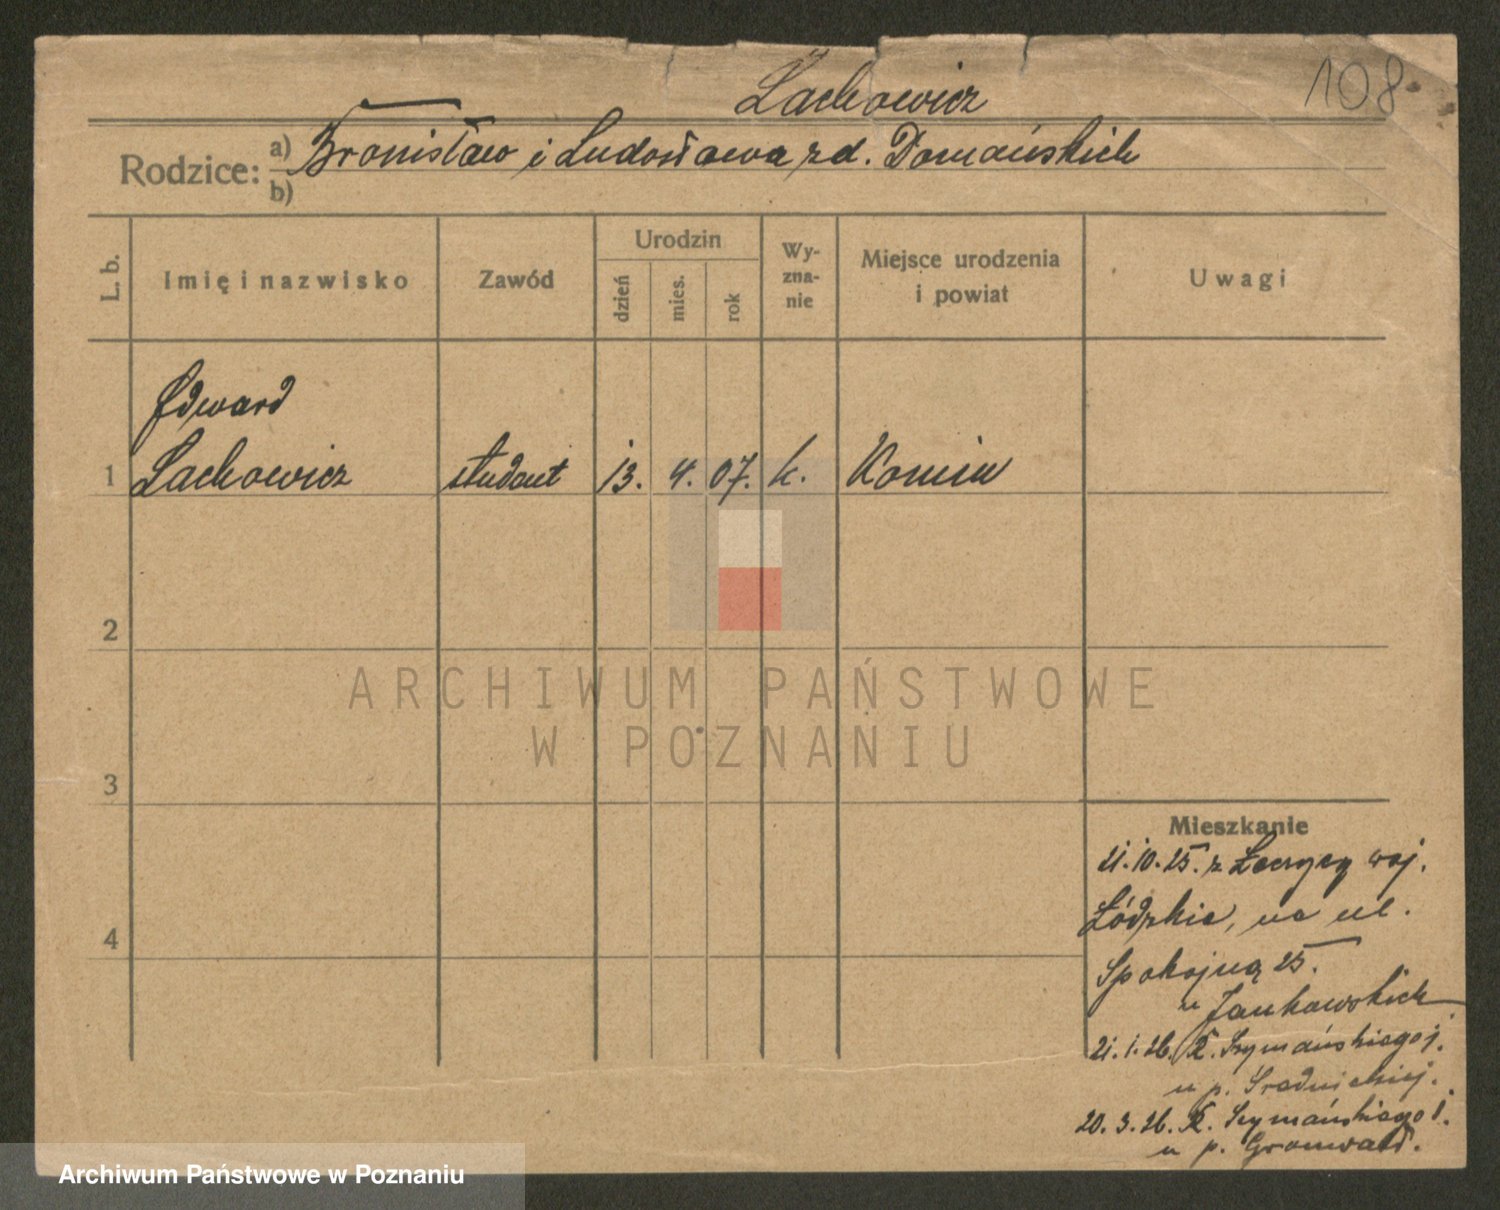 Lachowicz
108
Rodzice: a) Bronisław i Ludosława zd. Domańskich
b)
L. b.
Imię i nazwisko
Zawód
Urodzin
dzień
mies.
rok
Wy-
zna-
nie
Miejsce urodzenia
i powiat
Uwagi
Edward
1 Lachowicz student 13. 4. 07. k. Konin
2
3
4
Mieszkanie
21.10.25. z Łęczycy woj.
Łódzkie, na ul.
Spokojną 25.
u Jankowskich
21.1.26. K. Szymańskiego 1.
u p. Średnickiej.
20.3.26. K. Szymańskiego 1.
u p. Gronwald.
ARCHIWUM PAŃSTWOWE
W POZNANIU
Archiwum Państwowe w Poznaniu